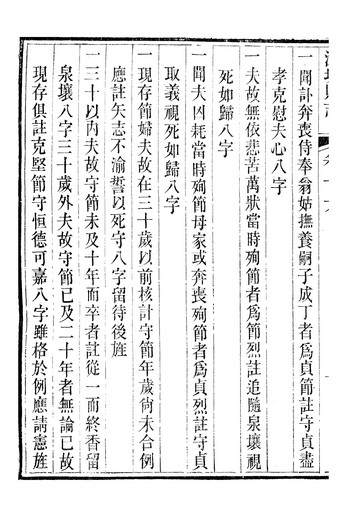 一聞訃奔喪侍奉翁姑撫養嗣子成丁者爲貞節註守貞盡
孝克慰夫心八字
一夫故無依悲苦萬狀當時殉節者爲節烈註追隨泉壤視
死如歸八字
一聞夫凶耗當時殉節母家或奔喪殉節者爲貞烈註守貞
取義視死如歸八字
一現存節婦夫故在三十歲以前核計守節年歲尙未合例
應註矢志不渝誓以死守八字留待後旌
一三十以內夫故守節未及十年而卒者註從一而終香留
泉壤八字三十歲外夫故守節已及二十年者無論已故
現存俱註克堅節守恒德可嘉八字雖格於例應請憲旌